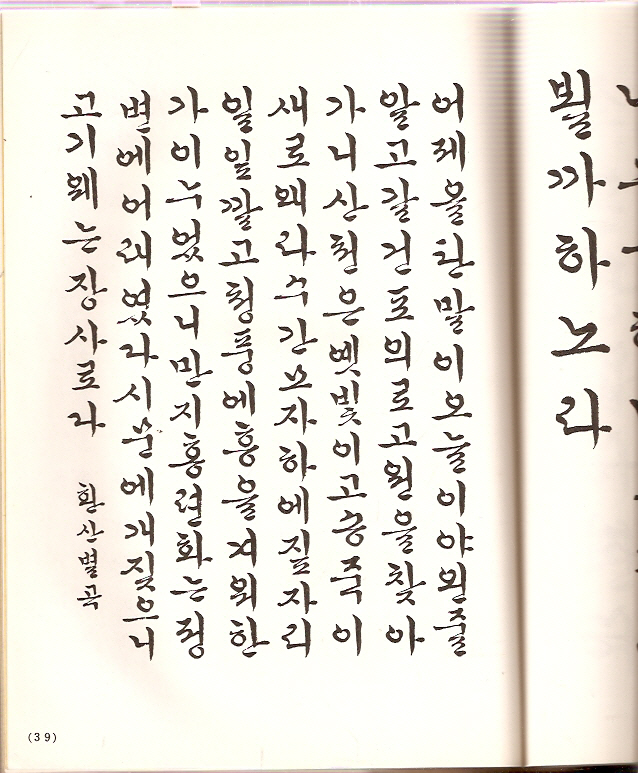 뵐까하노라
어제올탄말이오늘이야왼줄
알고갈건포의로고원을찾아
가니산천은옛빛이고송죽이
새로왜라수간모자하에짚자리
일입깔고청풍에흥을겨워한
가이누었으니만지홍련화는정
변에어래였다시문에개짖으니
고기왜는장사로다
환산별곡
(39)